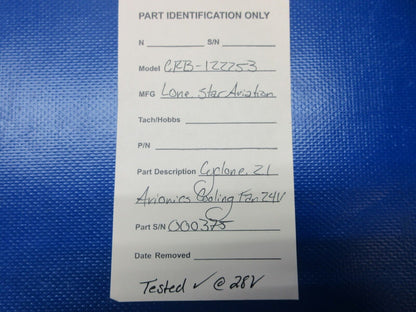 PART IDENTIFICATION ONLY
N S/N
Model CRB-122253
MFG Lone Star Aviation
Tach/Hobbs
P/N
Part Description Cyclone 21
Avionics Cooling Fan 24V
Part S/N 000375
Date Removed
Tested ✓ @ 28V